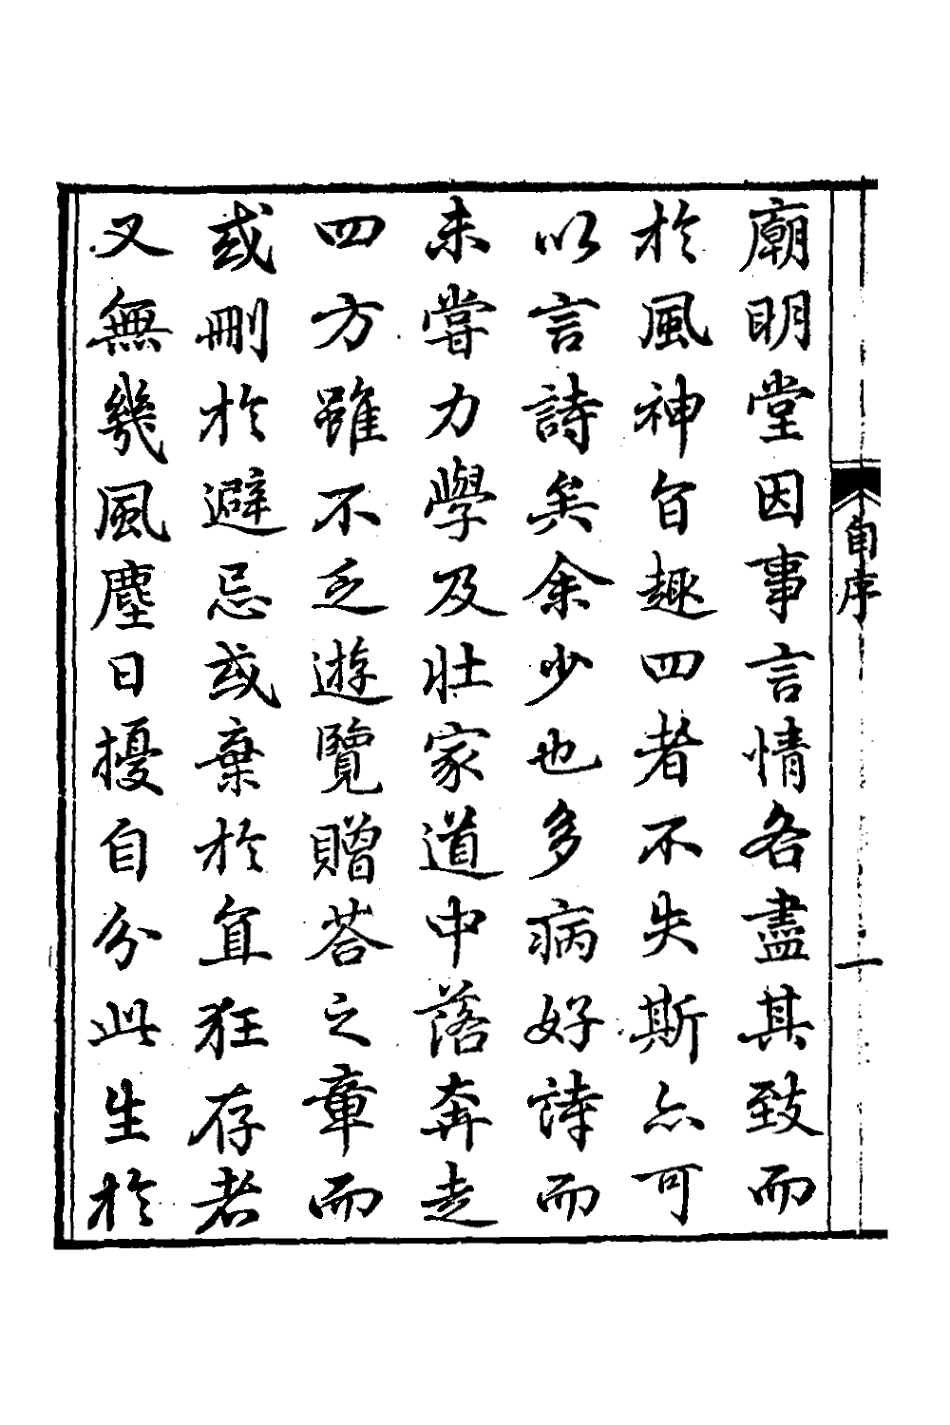 廟明堂因事言情各盡其致而
於風神旨趣四者不失斯亦可
以言詩矣余少也多病好詩而
未嘗力學及壯家道中落奔走
四方雖不乏遊覽贈荅之章而
或刪於避忌或棄於宜狂存者
又無幾風塵日擾自分此生於
自序
一